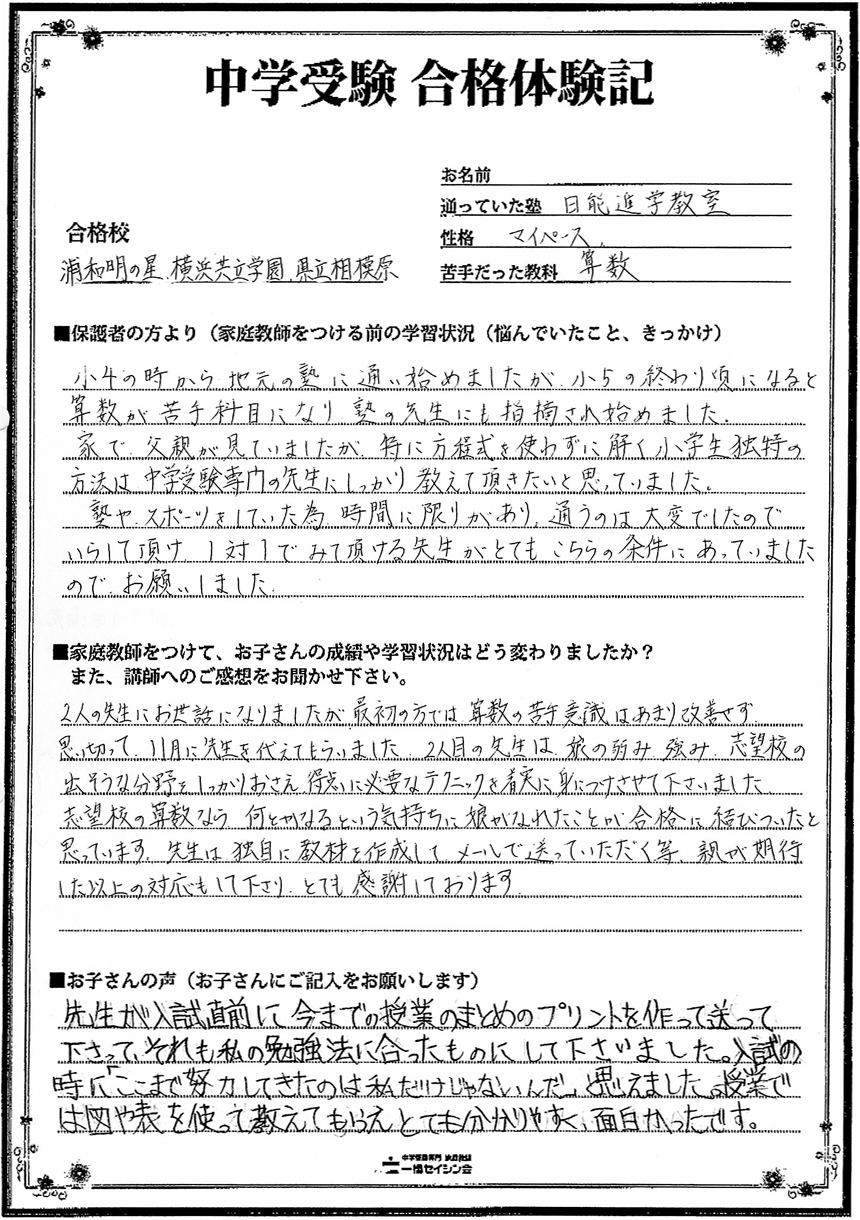 中学受験 合格体験記
お名前
通っていた塾 日能進学教室
性格 マイペース.
苦手だった教科 算数
合格校
浦和明の星、横浜共立学園、県立相模原
■保護者の方より（家庭教師をつける前の学習状況（悩んでいたこと、きっかけ）
小4の時から 地元の塾に通い始めましたが、小5の終わり頃になると
算数が苦手科目になり、塾の先生にも指摘され始めました。
家で、父親が見ていましたが、特に方程式を使わずに解く小学生独特の
方法は中学受験専門の先生にしっかり教えて頂きたいと思っていました。
塾や、スポーツをしていた為、時間に限りがあり、通うのは大変でしたので
いらして頂け、1対1でみて頂ける先生がとてもこちらの条件にあっていました
ので、お願いしました。
■家庭教師をつけて、お子さんの成績や学習状況はどう変わりましたか？
また、講師へのご感想をお聞かせ下さい。
2人の先生にお世話になりましたが、最初の方では、算数の苦手意識はあまり改善せず、
思い切って、11月に先生を代えてもらいました。2人目の先生は、娘の弱み、強み、志望校の
出そうな分野をしっかりおさえ、得点に必要なテクニックを着実に身につけさせて下さいました
志望校の算数なら、何とかなるという気持ちに娘がなれたことが合格に結びついたと
思っています。先生は、独自に教材を作成して、メールで送っていただく等、親が期待
した以上の対応もして下さり、とても感謝しております。
■お子さんの声（お子さんにご記入をお願いします）
先生が入試直前に今までの授業のまとめのプリントを作って送って
下さって、それも私の勉強法に合ったものにして下さいました。入試の
時に「ここまで努力してきたのは私だけじゃないんだ」と思えました。授業で
は図や表を使って教えてもらえとても分かりやすく、面白かったです。
中学受験専門 家庭教師
一橋セイシン会